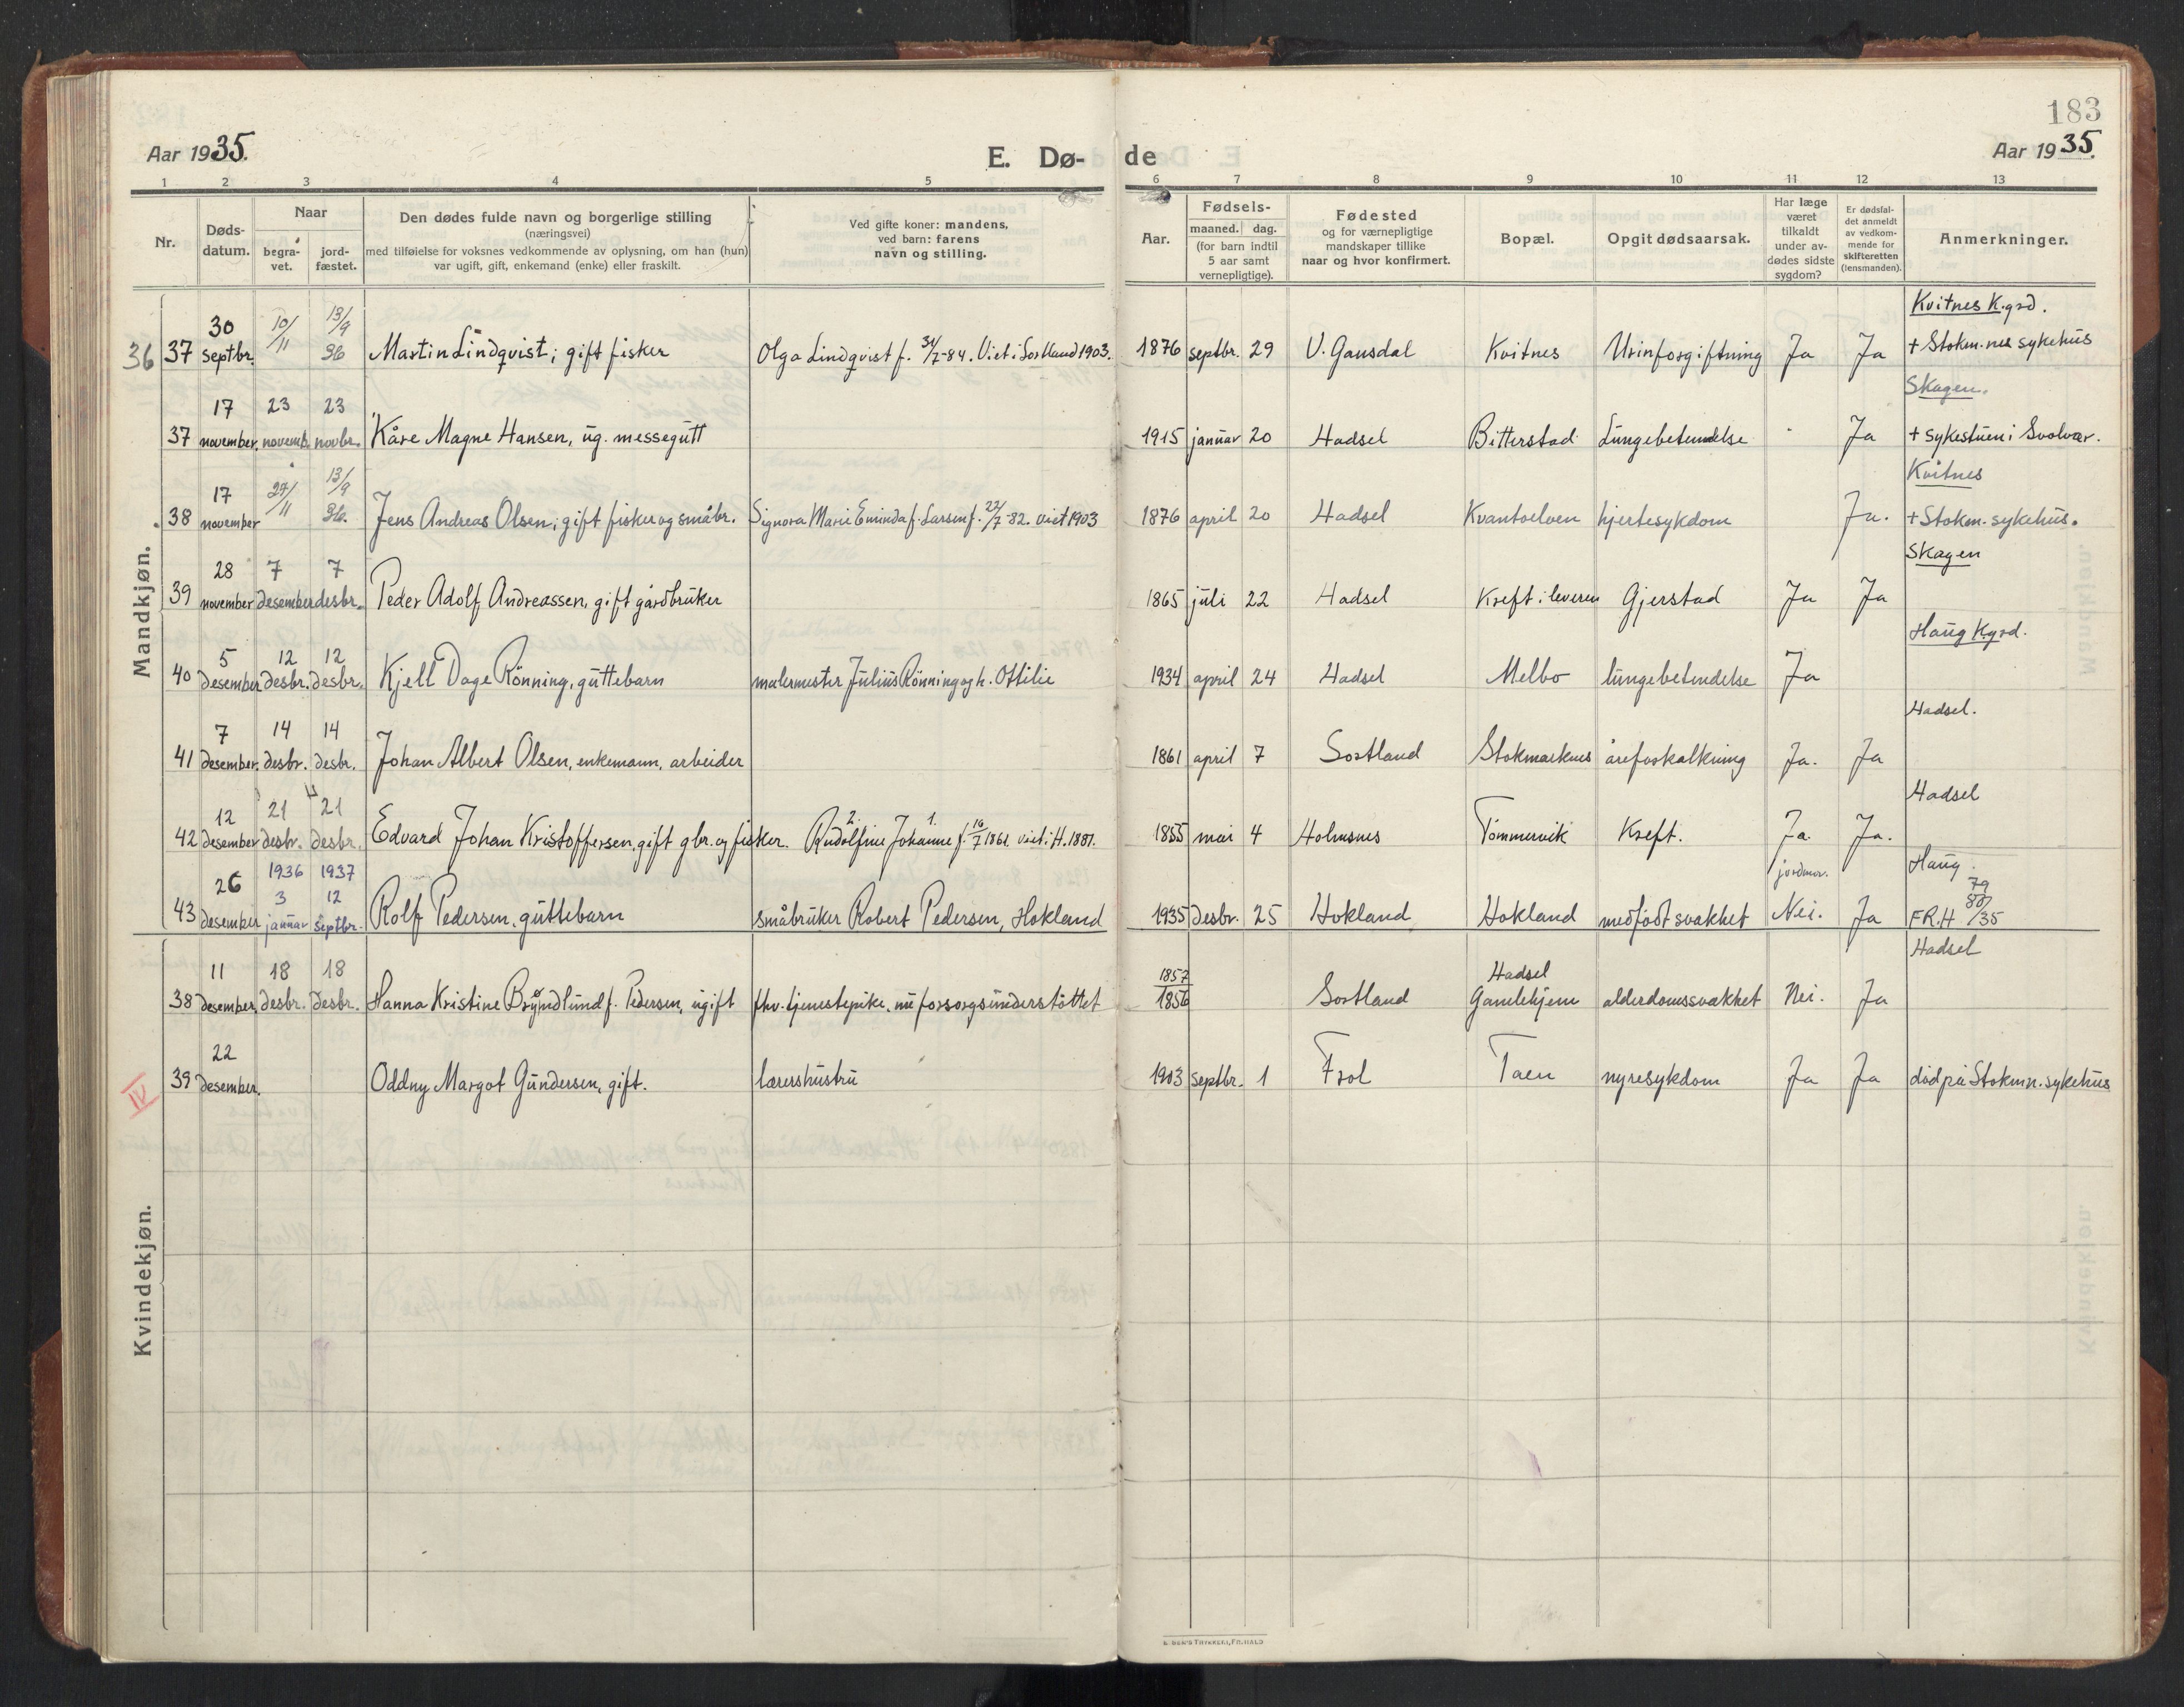 183
Aar 1935.
E. Dø-
de
Aar 1935.
1 2 3 4 5 6 7 8 9 10 11 12 13
Nr.
Døds-
datum.
Naar
begra-
vet.
jord-
fæstet.
Den dødes fulde navn og borgerlige stilling
(næringsvei)
med tilføielse for voksnes vedkommende av oplysning, om han (hun)
var ugift, gift, enkemand (enke) eller fraskilt.
Ved gifte koner: mandens,
ved barn: farens
navn og stilling.
Aar.
Fødsels-
maaned. dag.
(for barn indtil
5 aar samt
vernepligtige).
Fødested
og for værnepligtige
mandskaper tillike
naar og hvor konfirmert.
Bopæl.
Opgit dødsaarsak.
Har læge
været
tilkaldt
under av-
dødes sidste
sygdom?
Er dødsfal-
det anmeldt
av vedkom-
mende for
skifteretten
(lensmanden).
Anmerkninger.
Mandkjøn.
Kvitnes K.grd.
30 10/11 13/9 36
36 37 septbr. Martin Lindqvist; gift fisker Olga Lindqvist f. 31/7-84. Viet i Sortland 1903. 1876 septbr. 29 V. Gausdal Kvitnes Urinforgiftning Ja Ja + Stokm.nes sykehus
Skagen.
17 23 23
37 november. novemb. novbr. Kåre Magne Hansen, ug. messegutt 1915 januar 20 Hadsel Bitterstad Lungebetendelse Ja + sykestuen i Svolvær.
Kvitnes
17 27/11 13/9 36.
38 november Jens Andreas Olsen; gift fisker og småbr. Signora Marie Eminda f. Larsen f. 22/7-82. viet 1903 1876 april 20 Hadsel Kvantoelven hjertesykdom Ja. + Stokm. sykehus.
Skagen
28 7 7
39 november desember desbr. Peder Adolf Andreassen, gift gårdbruker 1865 juli 22 Hadsel Kreft i leveren Gjerstad Ja Ja
Haug K.grd.
5 12 12
40 desember desbr. desbr. Kjell Dage Rönning, guttebarn malermester Julius Rönning og h. Ottilie 1934 april 24 Hadsel Melbo lungebetendelse Ja
Hadsel.
7 14 14
41 desember. desbr. desbr. Johan Albert Olsen, enkemann, arbeider 1861 april 7 Sortland Stokmarknes åreforkalkning Ja. Ja
Hadsel
12 21 21
42 desember desbr. desbr. Edvard Johan Kristoffersen, gift gbr. og fisker. 2. Rudolfine 1. Johanne f. 16/7 1861. viet i H. 1881. 1855 mai 4 Holmsnes Tömmervik Kreft. Ja. Ja.
26 1936 1937 jordmor. Haug.
3 12 79
80/35
43 desember januar septbr. Rolf Pedersen, guttebarn småbruker Robert Pedersen, Hokland 1935 desbr. 25 Hokland Hokland medfödt svakhet Nei. Ja F.R.H
Kvindekjøn.
Hadsel
11 18 18 1857 Hadsel
38 desember. desbr. desbr. Hanna Kristine Bryndlund f. Pedersen, ugift fhv. tjenestepike. nu forsorgsunderstöttet 1856 Sortland Gamlehjem alderdomssvakhet Nei. Ja
22
IV 39 desember. Oddny Margot Gundersen, gift. lærershustru 1903 septbr. 1 Frol Taen nyresykdom Ja Ja död på Stokmn. sykehus